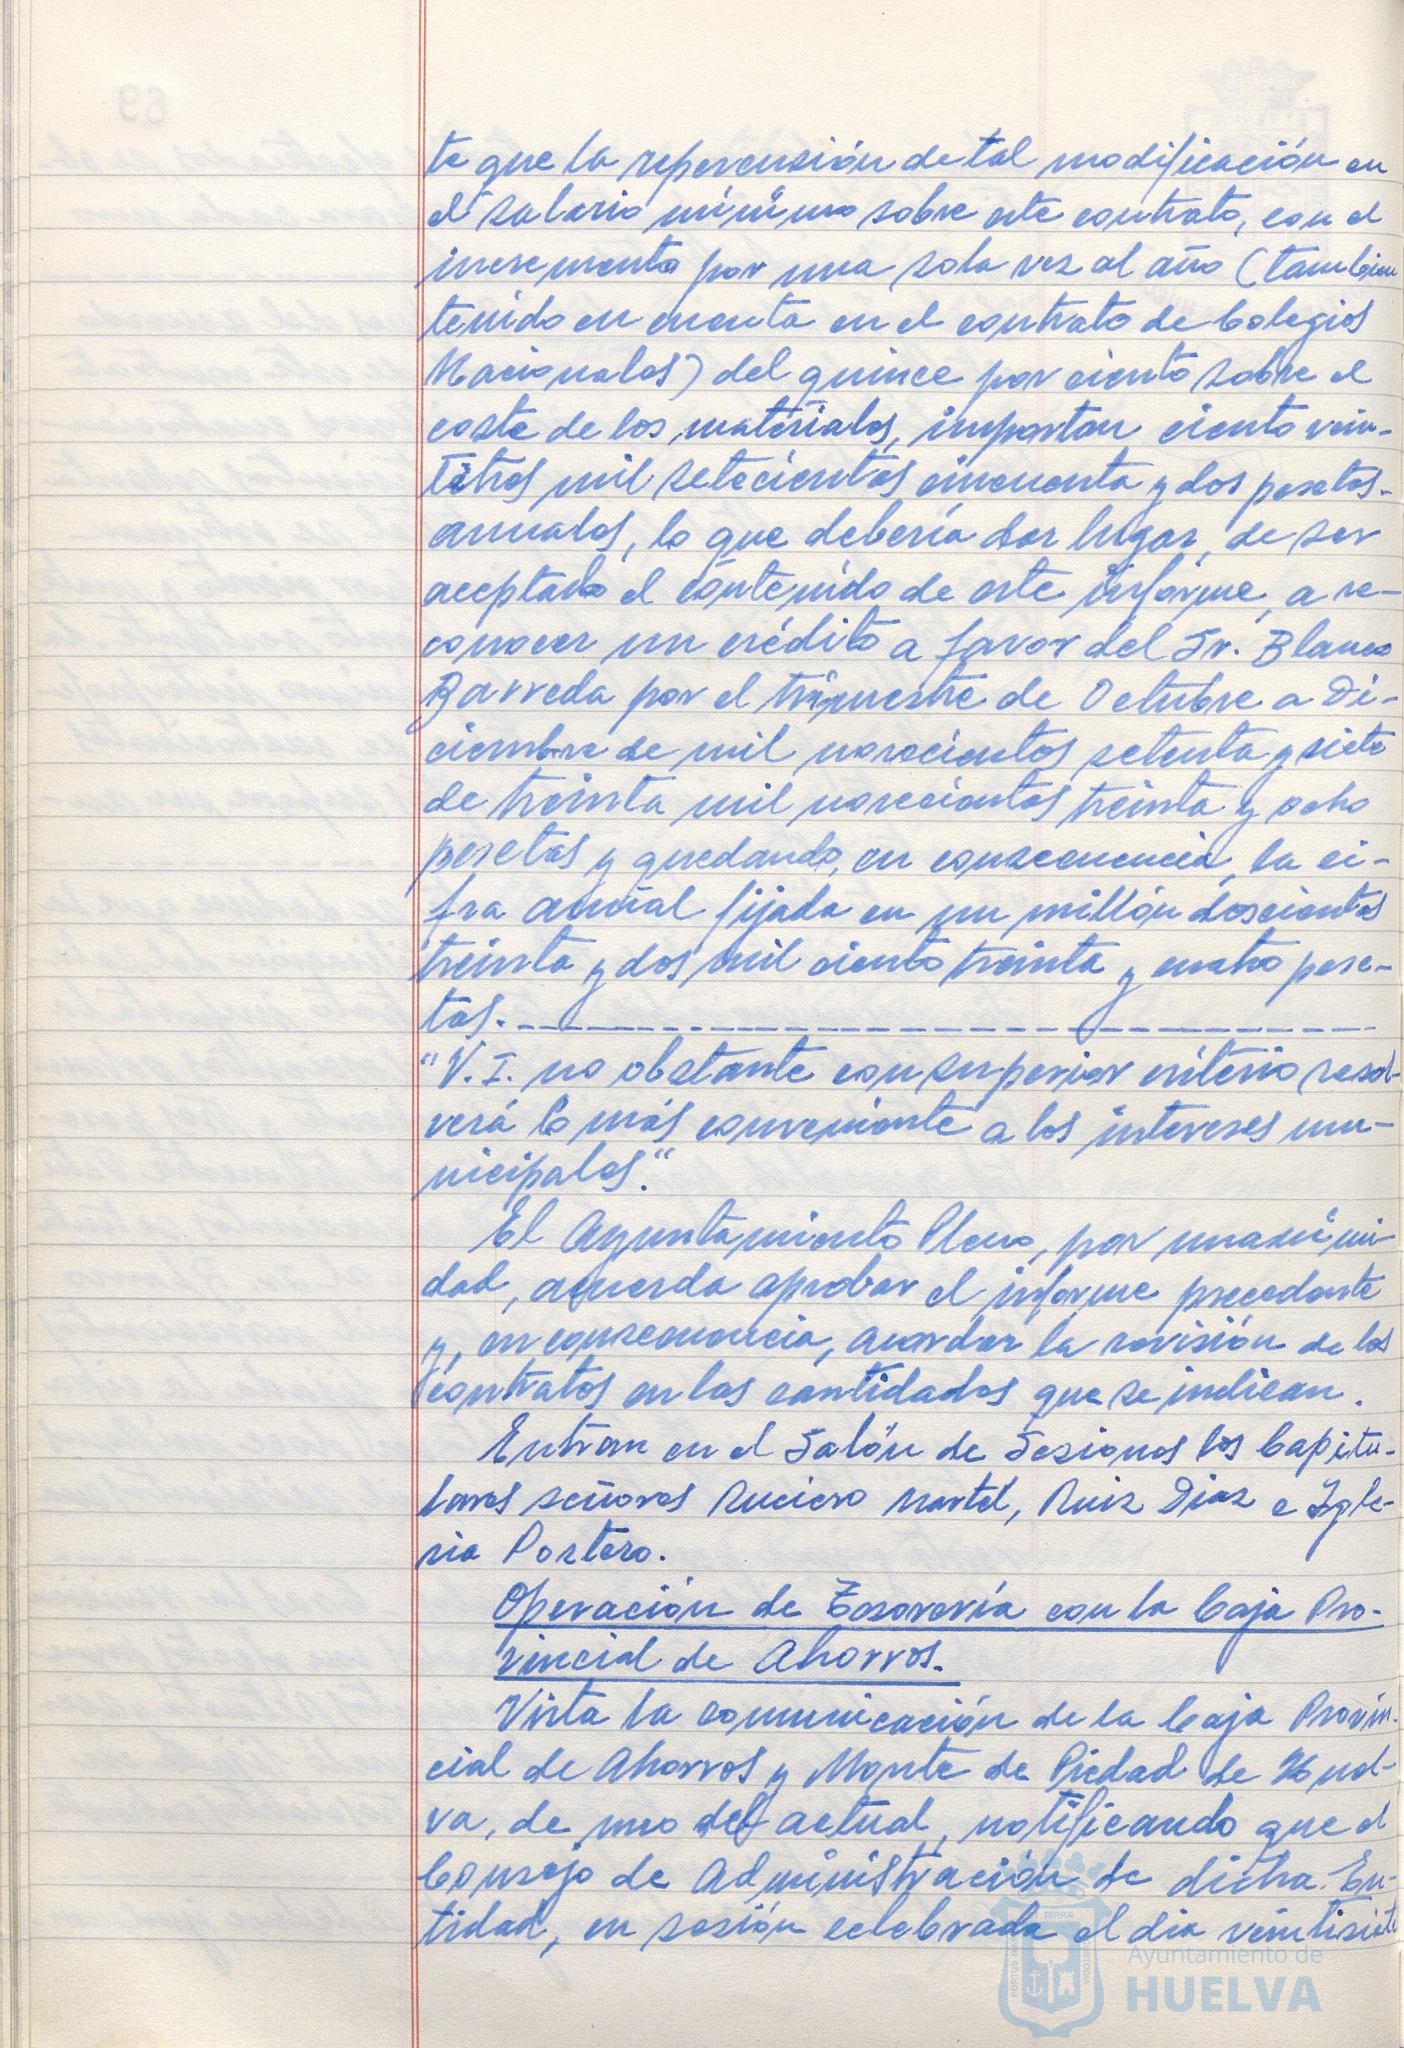 te que la repercusión de tal modificación en
el salario mínimo sobre este contrato, con el
incremento por una sola vez al año (también
tenido en cuenta en el contrato de Colegios
Nacionales) del quince por ciento sobre el
coste de los materiales, importan ciento vein-
titres mil setecientos cincuenta y dos pesetas.
anuales, lo que debería dar lugar, de ser
aceptado el contenido de este informe, a re-
conocer un crédito a favor del Sr. Blanco
Barreda por el trimestre de Octubre a Di-
ciembre de mil novecientos setenta y siete
de treinta mil novecientos treinta y ocho
pesetas y quedando, en consecuencia, la ci-
fra anual fijada en un millón doscientos
treinta y dos mil ciento treinta y cuatro pese-
tas.
"V.I. no obstante con superior criterio resol-
verá lo más conveniente a los intereses mu-
nicipales."
El Ayuntamiento Pleno, por unanimi-
dad, acuerda aprobar el informe precedente
y, en consecuencia, acordar la revisión de los
contratos en las cantidades que se indican.
Entran en el Salón de Sesiones los Capitu-
lares señores Suciero Martel, Ruiz Diaz e Igle-
sia Portero.
Operación de Tesorería con la Caja Pro-
vincial de Ahorros.
Vista la comunicación de la Caja Provin-
cial de Ahorros y Monte de Piedad de Huel-
va, de uno del actual, notificando que el
Consejo de Administración de dicha En-
tidad, en sesión celebrada el dia veintisiete
Ayuntamiento de
HUELVA